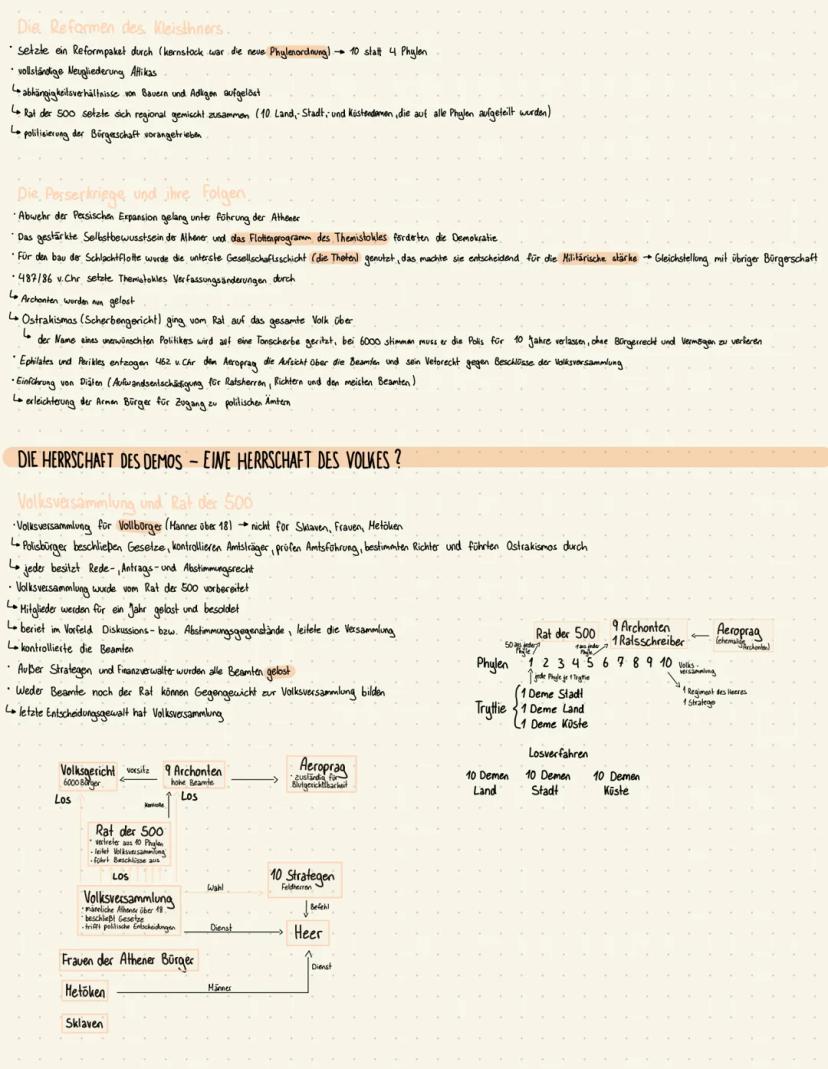 Die Reformen des Kleisthners
· setzte ein Reformpaket durch (kernstock war die neue Phylenordnung) → 10 statt 4 Phylen
· vollständige Neugliederung Attikas
↳ abhängigkeitsverhältnisse von Bauern und Adligen aufgelöst
↳ Rat der 500 setzte sich regional gemischt zusammen (10 Land,- Stadt,- und Küstendemen, die auf alle Phylen aufgeteilt wurden)
↳ politisierung der Bürgerschaft vorangetrieben
Die Perserkriege und ihre Folgen
· Abwehr der Persischen Expansion gelang unter führung der Athener
· Das gestärkte Selbstbewusstsein der Athener und das Flottenprogramm des Themistokles förderten die Demokratie
· Für den bau der Schlachtflotte wurde die unterste Gesellschaftsschicht (die Theten) genutzt, das machte sie entscheidend für die Militärische stärke → Gleichstellung mit übriger Bürgerschaft
· 487/86 v.Chr setzte Themistokles Verfassungsänderungen durch
↳ Archonten wurden nun gelost
↳ Ostrakismos (Scherbengericht) ging vom Rat auf das gesamte Volk über
↳ der Name eines unerwünschten Politikers wird auf eine Tonscherbe geritzt, bei 6000 stimmen muss er die Polis für 10 Jahre verlassen, ohne Bürgerrecht und Vermögen zu verlieren
· Ephilates und Perikles entzogen 462 v.Chr dem Aeroprag die Aufsicht über die Beamten und sein Vetorecht gegen Beschlüsse der Volksversammlung
· Einführung von Diäten (Aufwandsentschädigung für Ratsherren, Richtern und den meisten Beamten)
↳ erleichterung der Armen Bürger für Zugang zu politischen Ämtern
DIE HERRSCHAFT DES DEMOS – EINE HERRSCHAFT DES VOLKES ?
Volksversammlung und Rat der 500
· Volksversammlung für Vollbürger (Männer über 18) → nicht für Sklaven, Frauen, Metöken
↳ Polisbürger beschließen Gesetze, kontrollieren Amtsträger, prüfen Amtsführung, bestimmten Richter und führten Ostrakismos durch
↳ jeder besitzt Rede-, Antrags- und Abstimmungsrecht
· Volksversammlung wurde vom Rat der 500 vorbereitet
↳ Mitglieder werden für ein Jahr gelost und besoldet
↳ beriet im Vorfeld Diskussions- bzw. Abstimmungsgegenstände, leitete die Versammlung
↳ kontrollierte die Beamten
· Außer Strategen und Finanzverwalter wurden alle Beamten gelost
· Weder Beamte noch der Rat können Gegengewicht zur Volksversammlung bilden
↳ letzte Entscheidungsgewalt hat Volksversammlung
Rat der 500
9 Archonten
1 Ratsschreiber
←
Aeroprag
(ehemalige Archonten)
50 aus jeder Phyle
1 aus jeder Phyle
Phylen 1 2 3 4 5 6 7 8 9 10
Volksversammlung
jede Phyle je 1 Tryttie
1 Regiment des Heeres
1 Stratege
Tryttie
1 Deme Stadt
1 Deme Land
1 Deme Küste
Losverfahren
10 Demen Land
10 Demen Stadt
10 Demen Küste
Volksgericht
6000 Bürger
vorsitz
9 Archonten
hohe Beamte
Aeroprag
· zuständig für
Blutgerichtbarkeit
LOS
LOS
Kontrolle
Rat der 500
· vertreter aus 10 Phylen
· leitet Volksversammlung
· führt Beschlüsse aus
LOS
Volksversammlung
· männliche Athener über 18
· beschließt Gesetze
· trifft politische Entscheidungen
Wahl
10 Strategen
Feldherren
Befehl
Dienst
Heer
Frauen der Athener Bürger
Dienst
Metöken
Männer
Sklaven